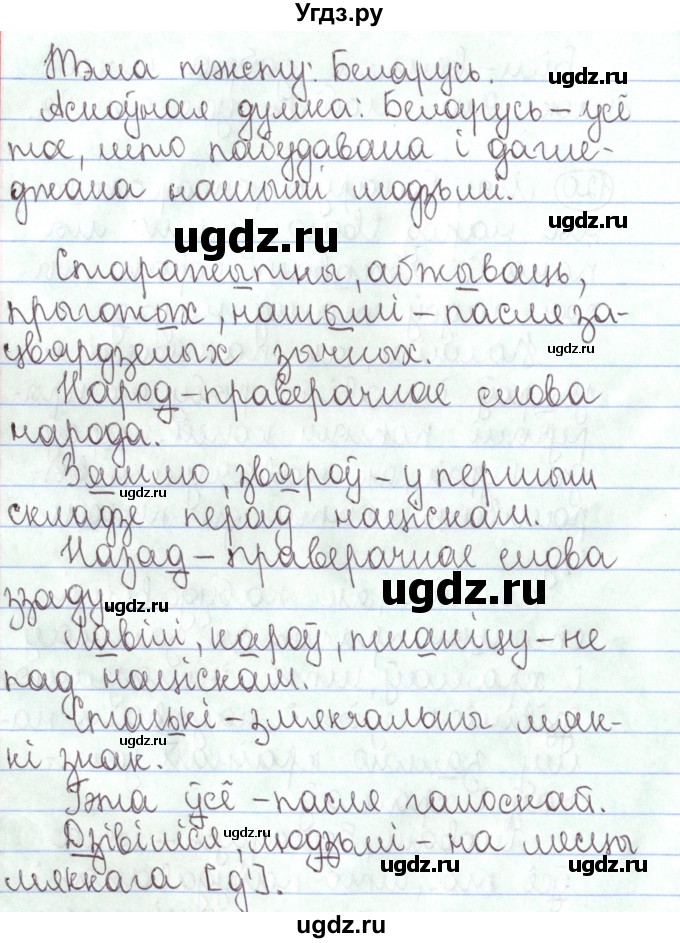 Угдз.ру
Тэма тэксту: Беларусь.
ugdz.ru
Асноўная думка: Беларусь – усё
тое, што пабудавана і дагле-
джана нашымі людзьмі.
ugdz.ru
ugdz.ru
Старажытны, абжываць,
прыгожых, нашымі – пасля за-
ugdz.ru
цвярдзелых зычных.
Народ – праверачнае слова
народа.
Зямлю, звяроў – у першым
ugdz.ru
складзе перад націскам.
Назад – праверачнае слова
ugdz.ru
ззаду.
ugdz.ru
Лавілі, кароў, пшаніцу – не
пад націскам.
Столькі – змякчальны мяк-
ugdz.ru
кі знак.
Гэта ўсё – пасля галоснай.
Дзівіліся, людзьмі – на месцы
ugdz.ru
ugdz.ru
мяккага [д'].
ugdz.ru